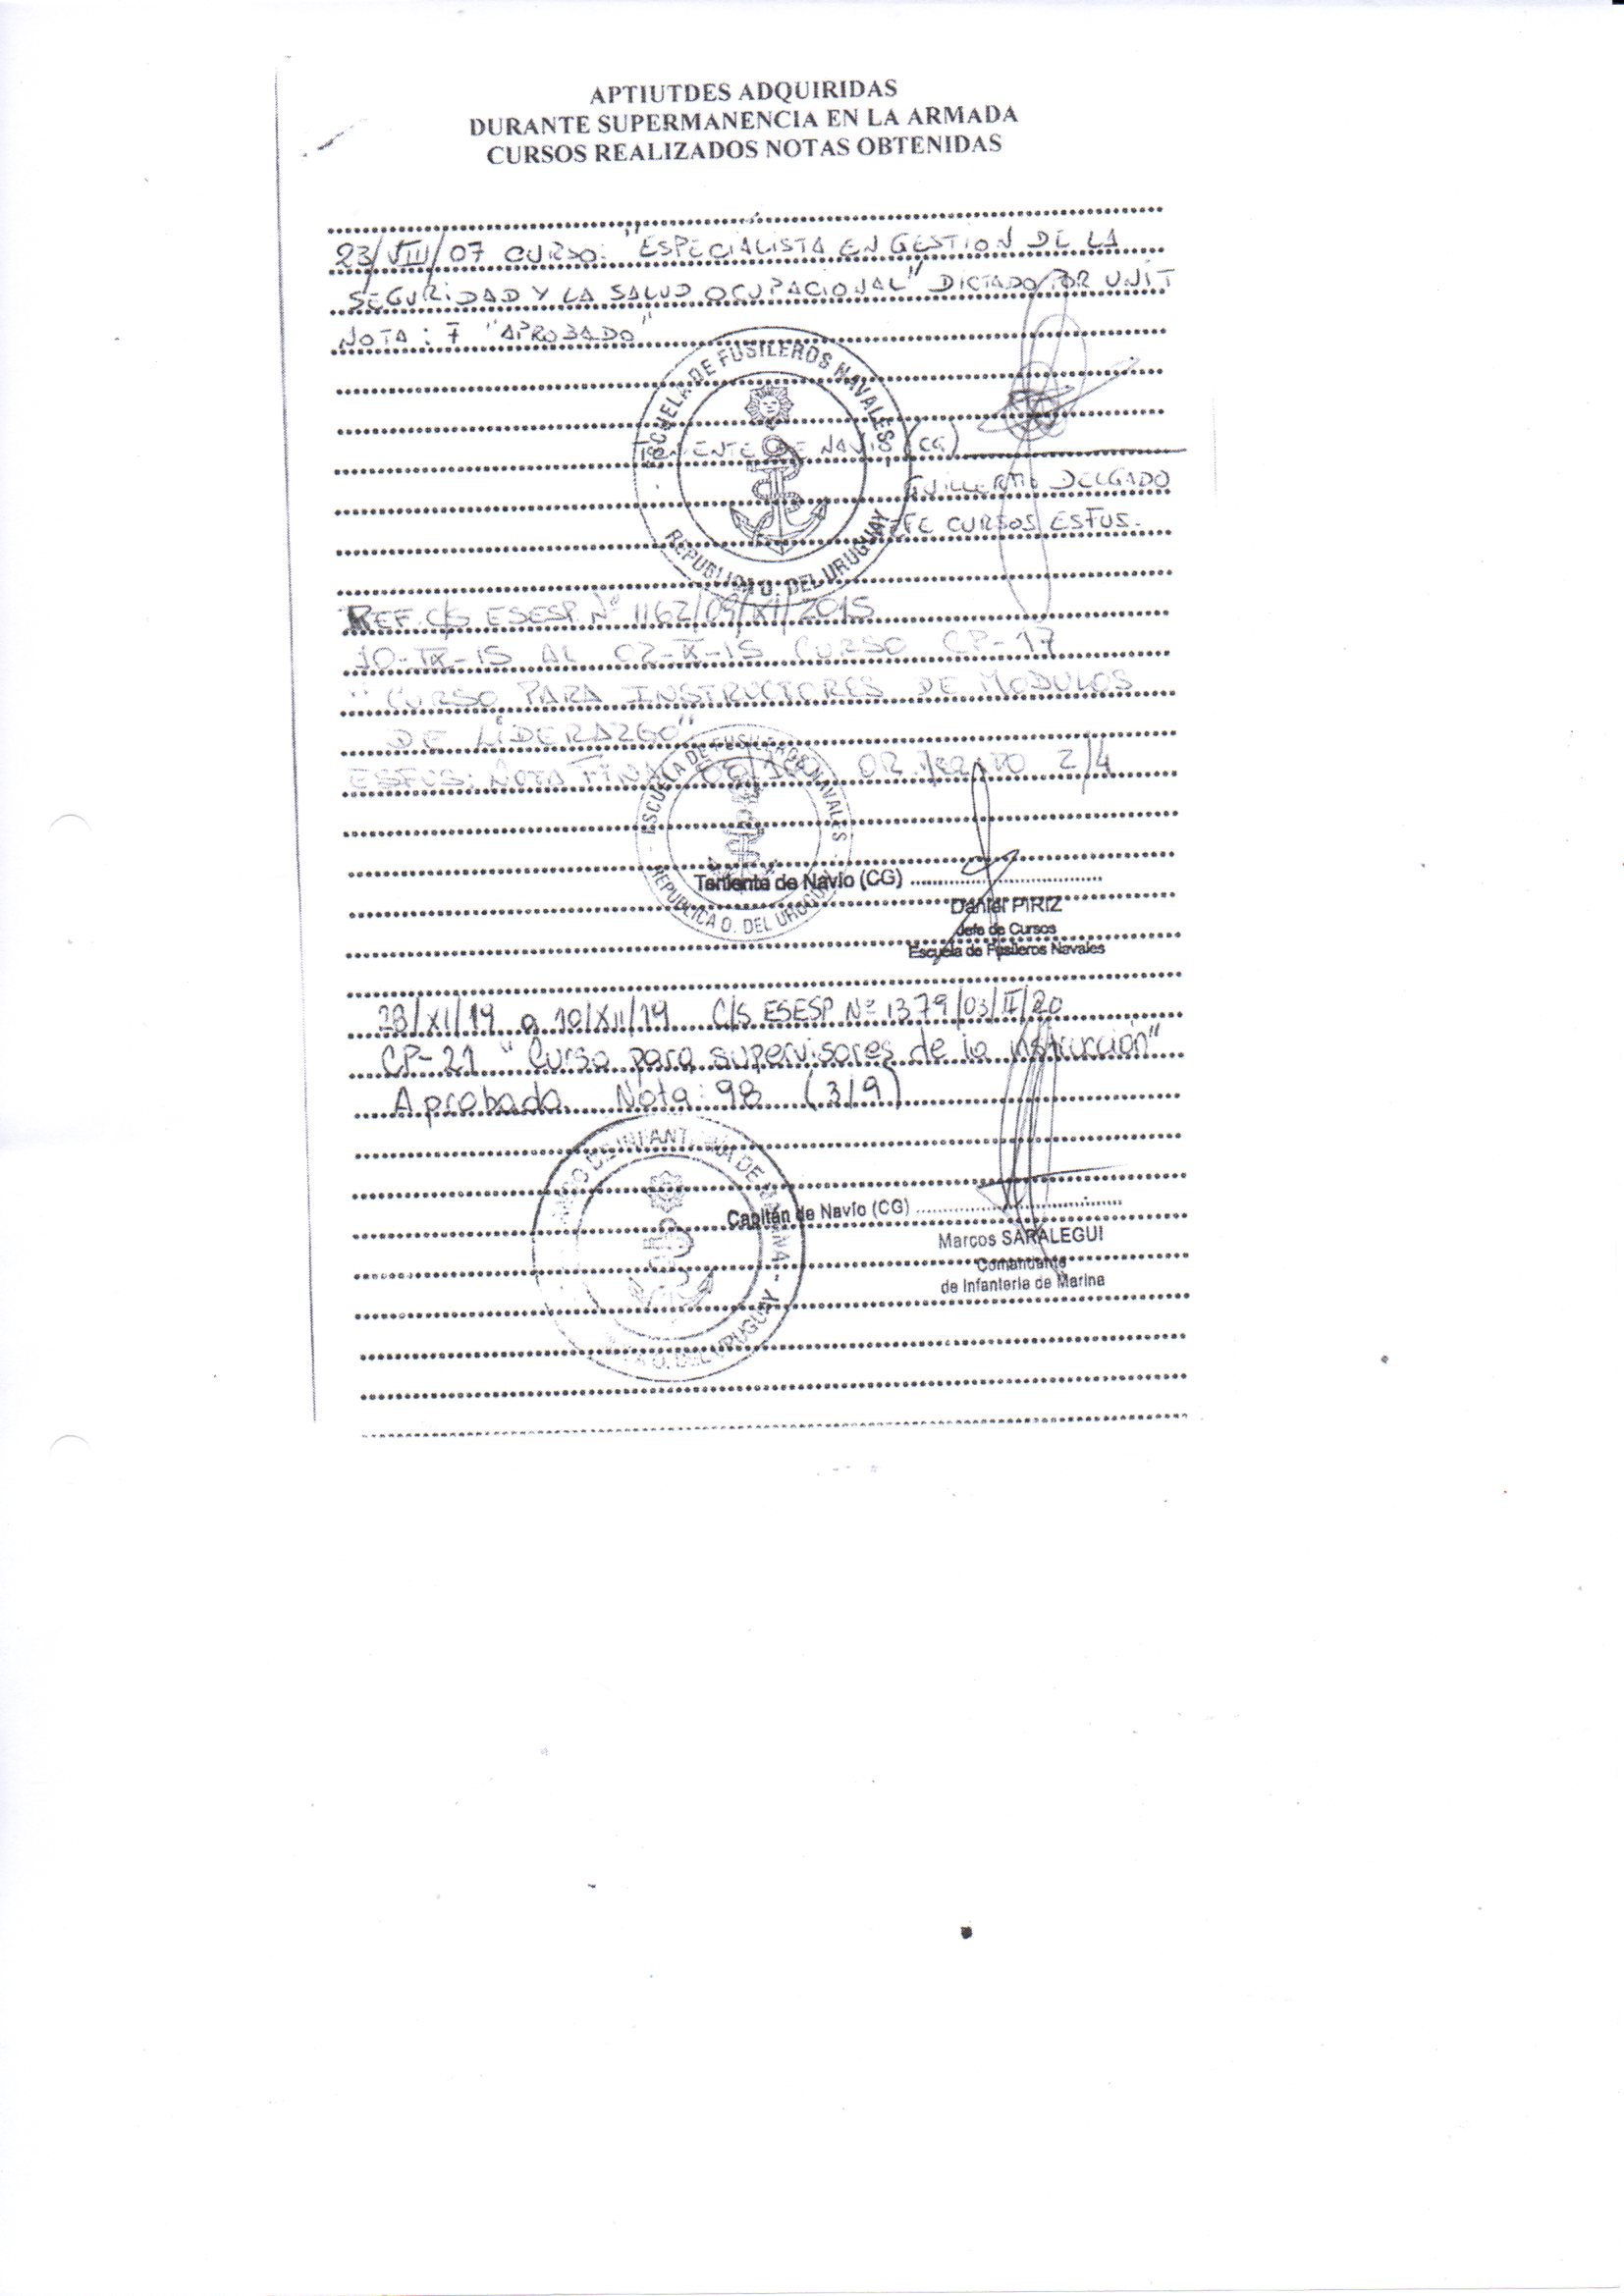 APTIUTDES ADQUIRIDAS
DURANTE SUPERMANENCIA EN LA ARMADA
CURSOS REALIZADOS NOTAS OBTENIDAS
23/VIII/07 CURSO: "ESPECIALISTA EN GESTION DE LA
SEGURIDAD Y LA SALUD OCUPACIONAL" DICTADO POR UNIT
NOTA: 7 "APROBADO"
ESCUELA DE FUSILEROS NAVALES
TENIENTE DE NAVIO (CG)
GUILLERMO DELGADO
JEFE CURSOS ESFUS.
REPUBLICA O. DEL URUGUAY
REF. C/S ESESP. Nº 1162/09/XI/2015
10-IX-15 AL 02-X-15 CURSO CP-17
"CURSO PARA INSTRUCTORES DE MODULOS
DE LIDERAZGO"
ESFUS: NOTA FINAL 2/4
ESCUELA DE FUSILEROS NAVALES
Teniente de Navío (CG)
Daniel PIRIZ
Jefe de Cursos
Escuela de Fusileros Navales
REPUBLICA O. DEL URUGUAY
28/XI/19 a 10/XII/19 C/S ESESP Nº 1379/03/II/20
CP-21 "Curso para supervisores de la instrucción"
Aprobado Nota: 98 (3/9)
DE INFANTERIA DE MARINA
Capitán de Navío (CG)
Marcos SARALEGUI
Comandante
de Infanteria de Marina
O. DEL URUGUAY